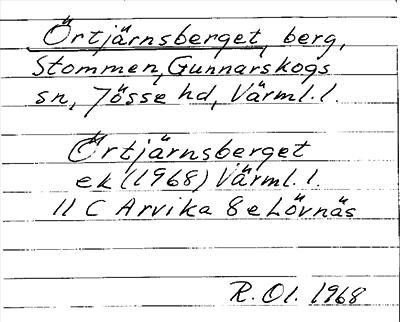 Örtjärnsberget, berg,
Stommen, Gunnarskogs
sn, Jösse hd, Värml. l.
Örtjärnsberget
ek (1968) Värml. l.
11 C Arvika 8 e Lövnäs
R. Ol. 1968